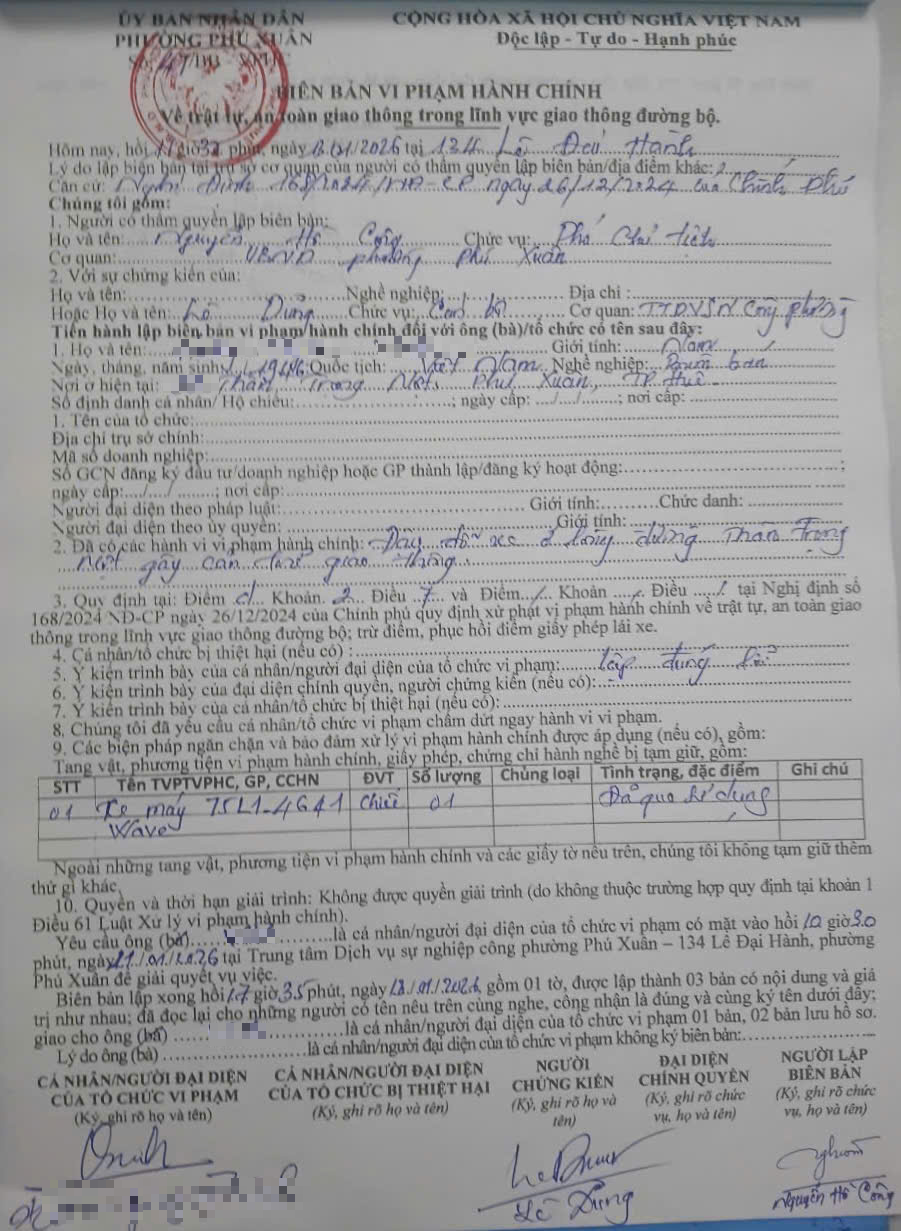 ỦY BAN NHÂN DÂN
PHƯỜNG PHÚ XUÂN
CỘNG HÒA XÃ HỘI CHỦ NGHĨA VIỆT NAM
Độc lập - Tự do - Hạnh phúc
BIÊN BẢN VI PHẠM HÀNH CHÍNH
Về trật tự, an toàn giao thông trong lĩnh vực giao thông đường bộ.
Hôm nay, hồi 17 giờ 32 phút, ngày /01/2026 tại 134 Lê Đại Hành
Lý do lập biên bản tại trụ sở cơ quan của người có thẩm quyền lập biên bản/địa điểm khác:
Căn cứ: Nghị Định 168/2024/NĐ-CP ngày 26/12/2024 của Chính Phủ
Chúng tôi gồm:
1. Người có thẩm quyền lập biên bản:
Họ và tên: Nguyễn Hồ Công Chức vụ: Phó Chủ tịch
Cơ quan: UBND phường Phú Xuân
2. Với sự chứng kiến của:
Họ và tên: Nghề nghiệp: Địa chỉ :
Hoặc Họ và tên: Lê Dũng Chức vụ: Cán bộ Cơ quan: TTDVSN Công phường
Tiến hành lập biên bản vi phạm/hành chính đối với ông (bà)/tổ chức có tên sau đây:
1. Họ và tên: Giới tính: Nam
Ngày, tháng, năm sinh: / /1946 Quốc tịch: Việt Nam Nghề nghiệp: Buôn bán
Nơi ở hiện tại: Thân Trọng Một, Phú Xuân, TP Huế
Số định danh cá nhân/ Hộ chiếu: ; ngày cấp: / / ; nơi cấp:
1. Tên của tổ chức:
Địa chỉ trụ sở chính:
Mã số doanh nghiệp:
Số GCN đăng ký đầu tư/doanh nghiệp hoặc GP thành lập/đăng ký hoạt động: ;
ngày cấp: / / ; nơi cấp:
Người đại diện theo pháp luật: Giới tính: Chức danh:
Người đại diện theo ủy quyền: Giới tính:
2. Đã có các hành vi vi phạm hành chính: đỗ xe ở lòng đường Thân Trọng
Một gây cản trở giao thông
3. Quy định tại: Điểm Khoản 2 Điều 7 và Điểm / Khoản / Điều / tại Nghị định số
168/2024 NĐ-CP ngày 26/12/2024 của Chính phủ quy định xử phạt vi phạm hành chính về trật tự, an toàn giao
thông trong lĩnh vực giao thông đường bộ; trừ điểm, phục hồi điểm giấy phép lái xe.
4. Cá nhân/tổ chức bị thiệt hại (nếu có) :
5. Ý kiến trình bày của cá nhân/người đại diện của tổ chức vi phạm: lập đúng lỗi
6. Ý kiến trình bày của đại diện chính quyền, người chứng kiến (nếu có):
7. Ý kiến trình bày của cá nhân/tổ chức bị thiệt hại (nếu có):
8. Chúng tôi đã yêu cầu cá nhân/tổ chức vi phạm chấm dứt ngay hành vi vi phạm.
9. Các biện pháp ngăn chặn và bảo đảm xử lý vi phạm hành chính được áp dụng (nếu có), gồm:
Tang vật, phương tiện vi phạm hành chính, giấy phép, chứng chỉ hành nghề bị tạm giữ, gồm:
STT Tên TVPTVPHC, GP, CCHN ĐVT Số lượng Chủng loại Tình trạng, đặc điểm Ghi chú
01 Xe máy 75L1-4641 Chiếc 01 Đã qua sử dụng
Wave
Ngoài những tang vật, phương tiện vi phạm hành chính và các giấy tờ nêu trên, chúng tôi không tạm giữ thêm
thứ gì khác.
10. Quyền và thời hạn giải trình: Không được quyền giải trình (do không thuộc trường hợp quy định tại khoản 1
Điều 61 Luật Xử lý vi phạm hành chính).
Yêu cầu ông (bà) là cá nhân/người đại diện của tổ chức vi phạm có mặt vào hồi 10 giờ 30
phút, ngày 21/01/2026 tại Trung tâm Dịch vụ sự nghiệp công phường Phú Xuân – 134 Lê Đại Hành, phường
Phú Xuân để giải quyết vụ việc.
Biên bản lập xong hồi 17 giờ 35 phút, ngày 18/01/2026, gồm 01 tờ, được lập thành 03 bản có nội dung và giá
trị như nhau; đã đọc lại cho những người có tên nêu trên cùng nghe, công nhận là đúng và cùng ký tên dưới đây;
giao cho ông (bà) là cá nhân/người đại diện của tổ chức vi phạm 01 bản, 02 bản lưu hồ sơ.
Lý do ông (bà) là cá nhân/người đại diện của tổ chức vi phạm không ký biên bản:
CÁ NHÂN/NGƯỜI ĐẠI DIỆN
CỦA TỔ CHỨC VI PHẠM
(Ký, ghi rõ họ và tên)
CÁ NHÂN/NGƯỜI ĐẠI DIỆN
CỦA TỔ CHỨC BỊ THIỆT HẠI
(Ký, ghi rõ họ và tên)
NGƯỜI
CHỨNG KIẾN
(Ký, ghi rõ họ và
tên)
ĐẠI DIỆN
CHÍNH QUYỀN
(Ký, ghi rõ chức
vụ, họ và tên)
NGƯỜI LẬP
BIÊN BẢN
(Ký, ghi rõ chức
vụ, họ và tên)
Lê Dũng
Nguyễn Hồ Công